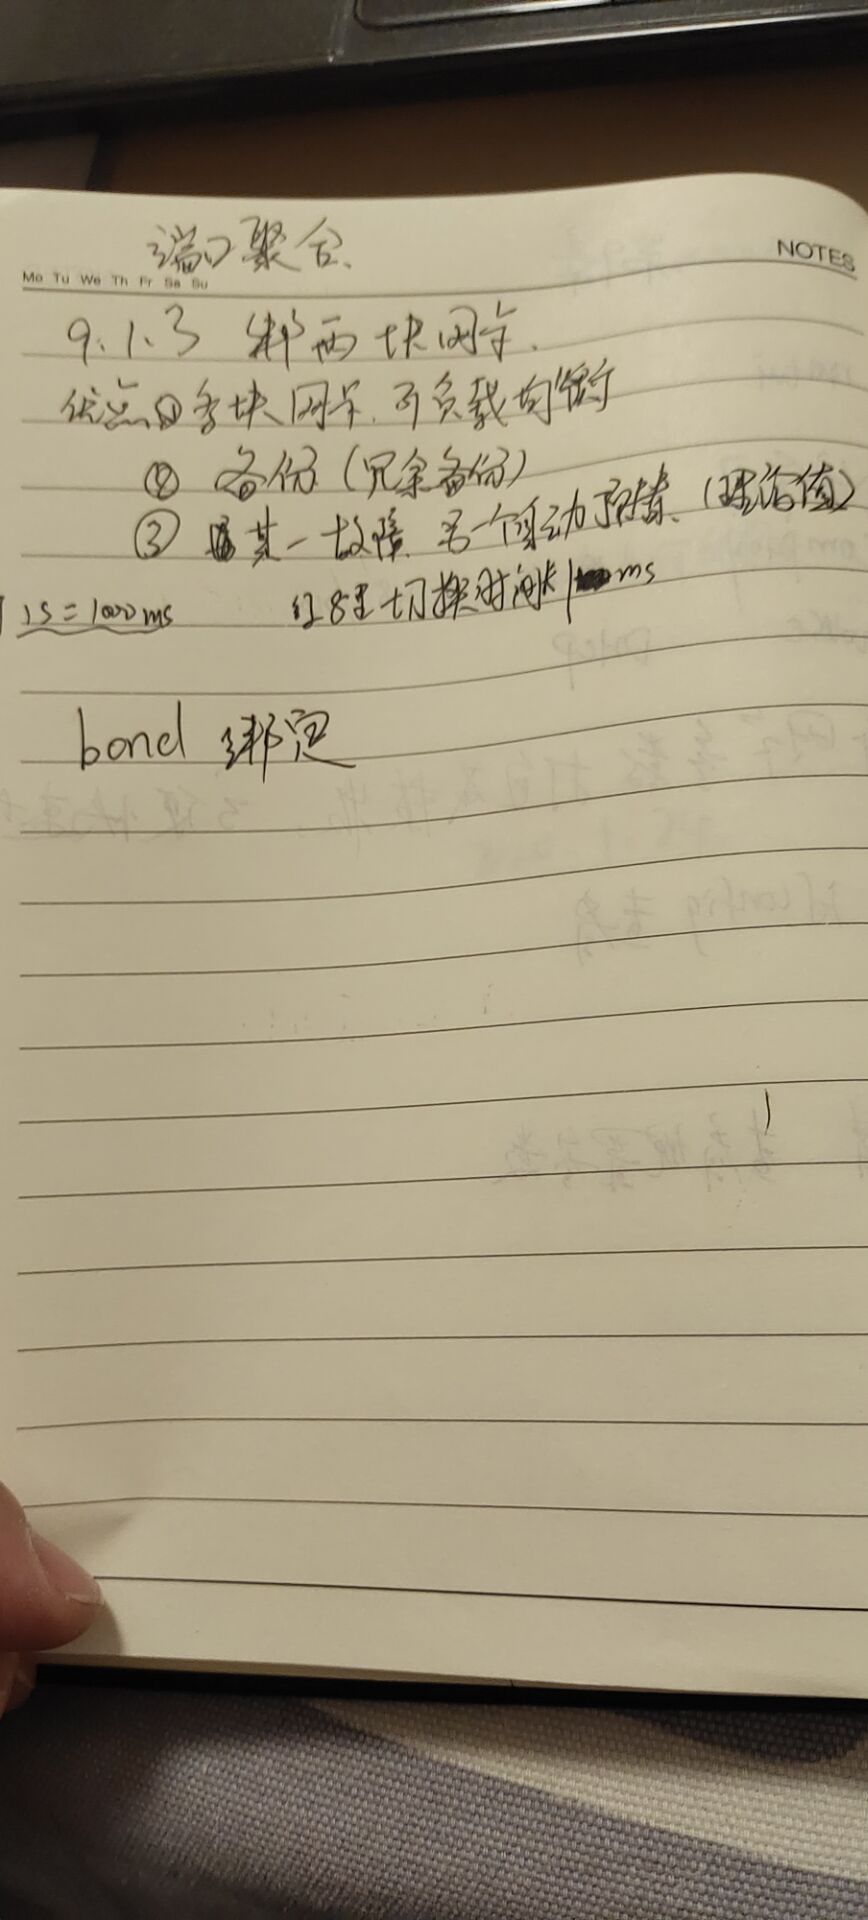 端口聚合、
NOTES
Mo Tu We Th Fr Sa Su
9.1.3 绑两块网卡.
优点①多块网卡.可负载均衡
② 备份(冗余备份)
③ 其一故障 另一个自动顶替、(理论值)
1S=1000ms 红8里切换时间 ms
bond 绑定